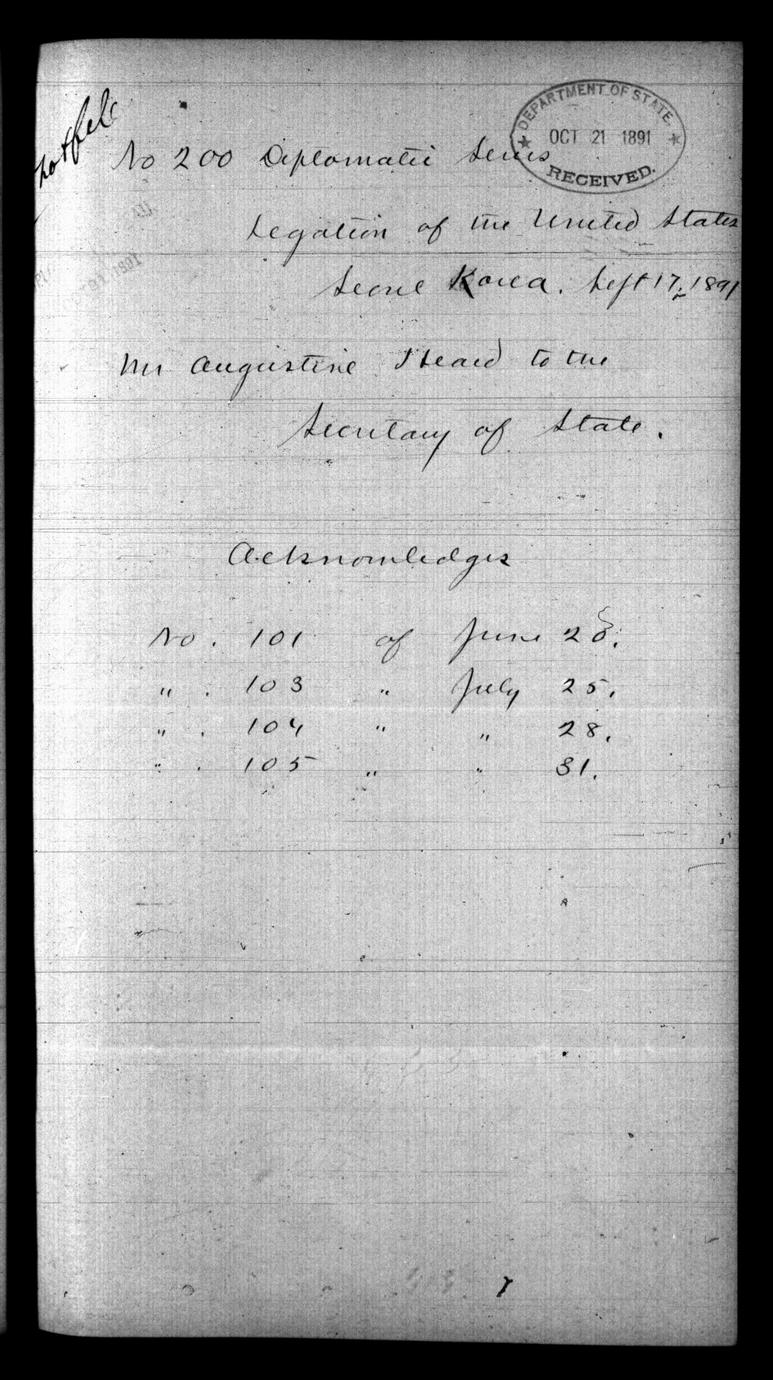 DEPARTMENT OF STATE
OCT 21 1891
RECEIVED.
No 200 Diplomatic Series
Legation of the United States
Seoul Korea. Sept 17, 1891
Mr Augustine Heard to the
Secretary of State.
Acknowledges
No. 101 of June
" . 103 " July 25.
" . 104 " " 28.
" . 105 " " 31.